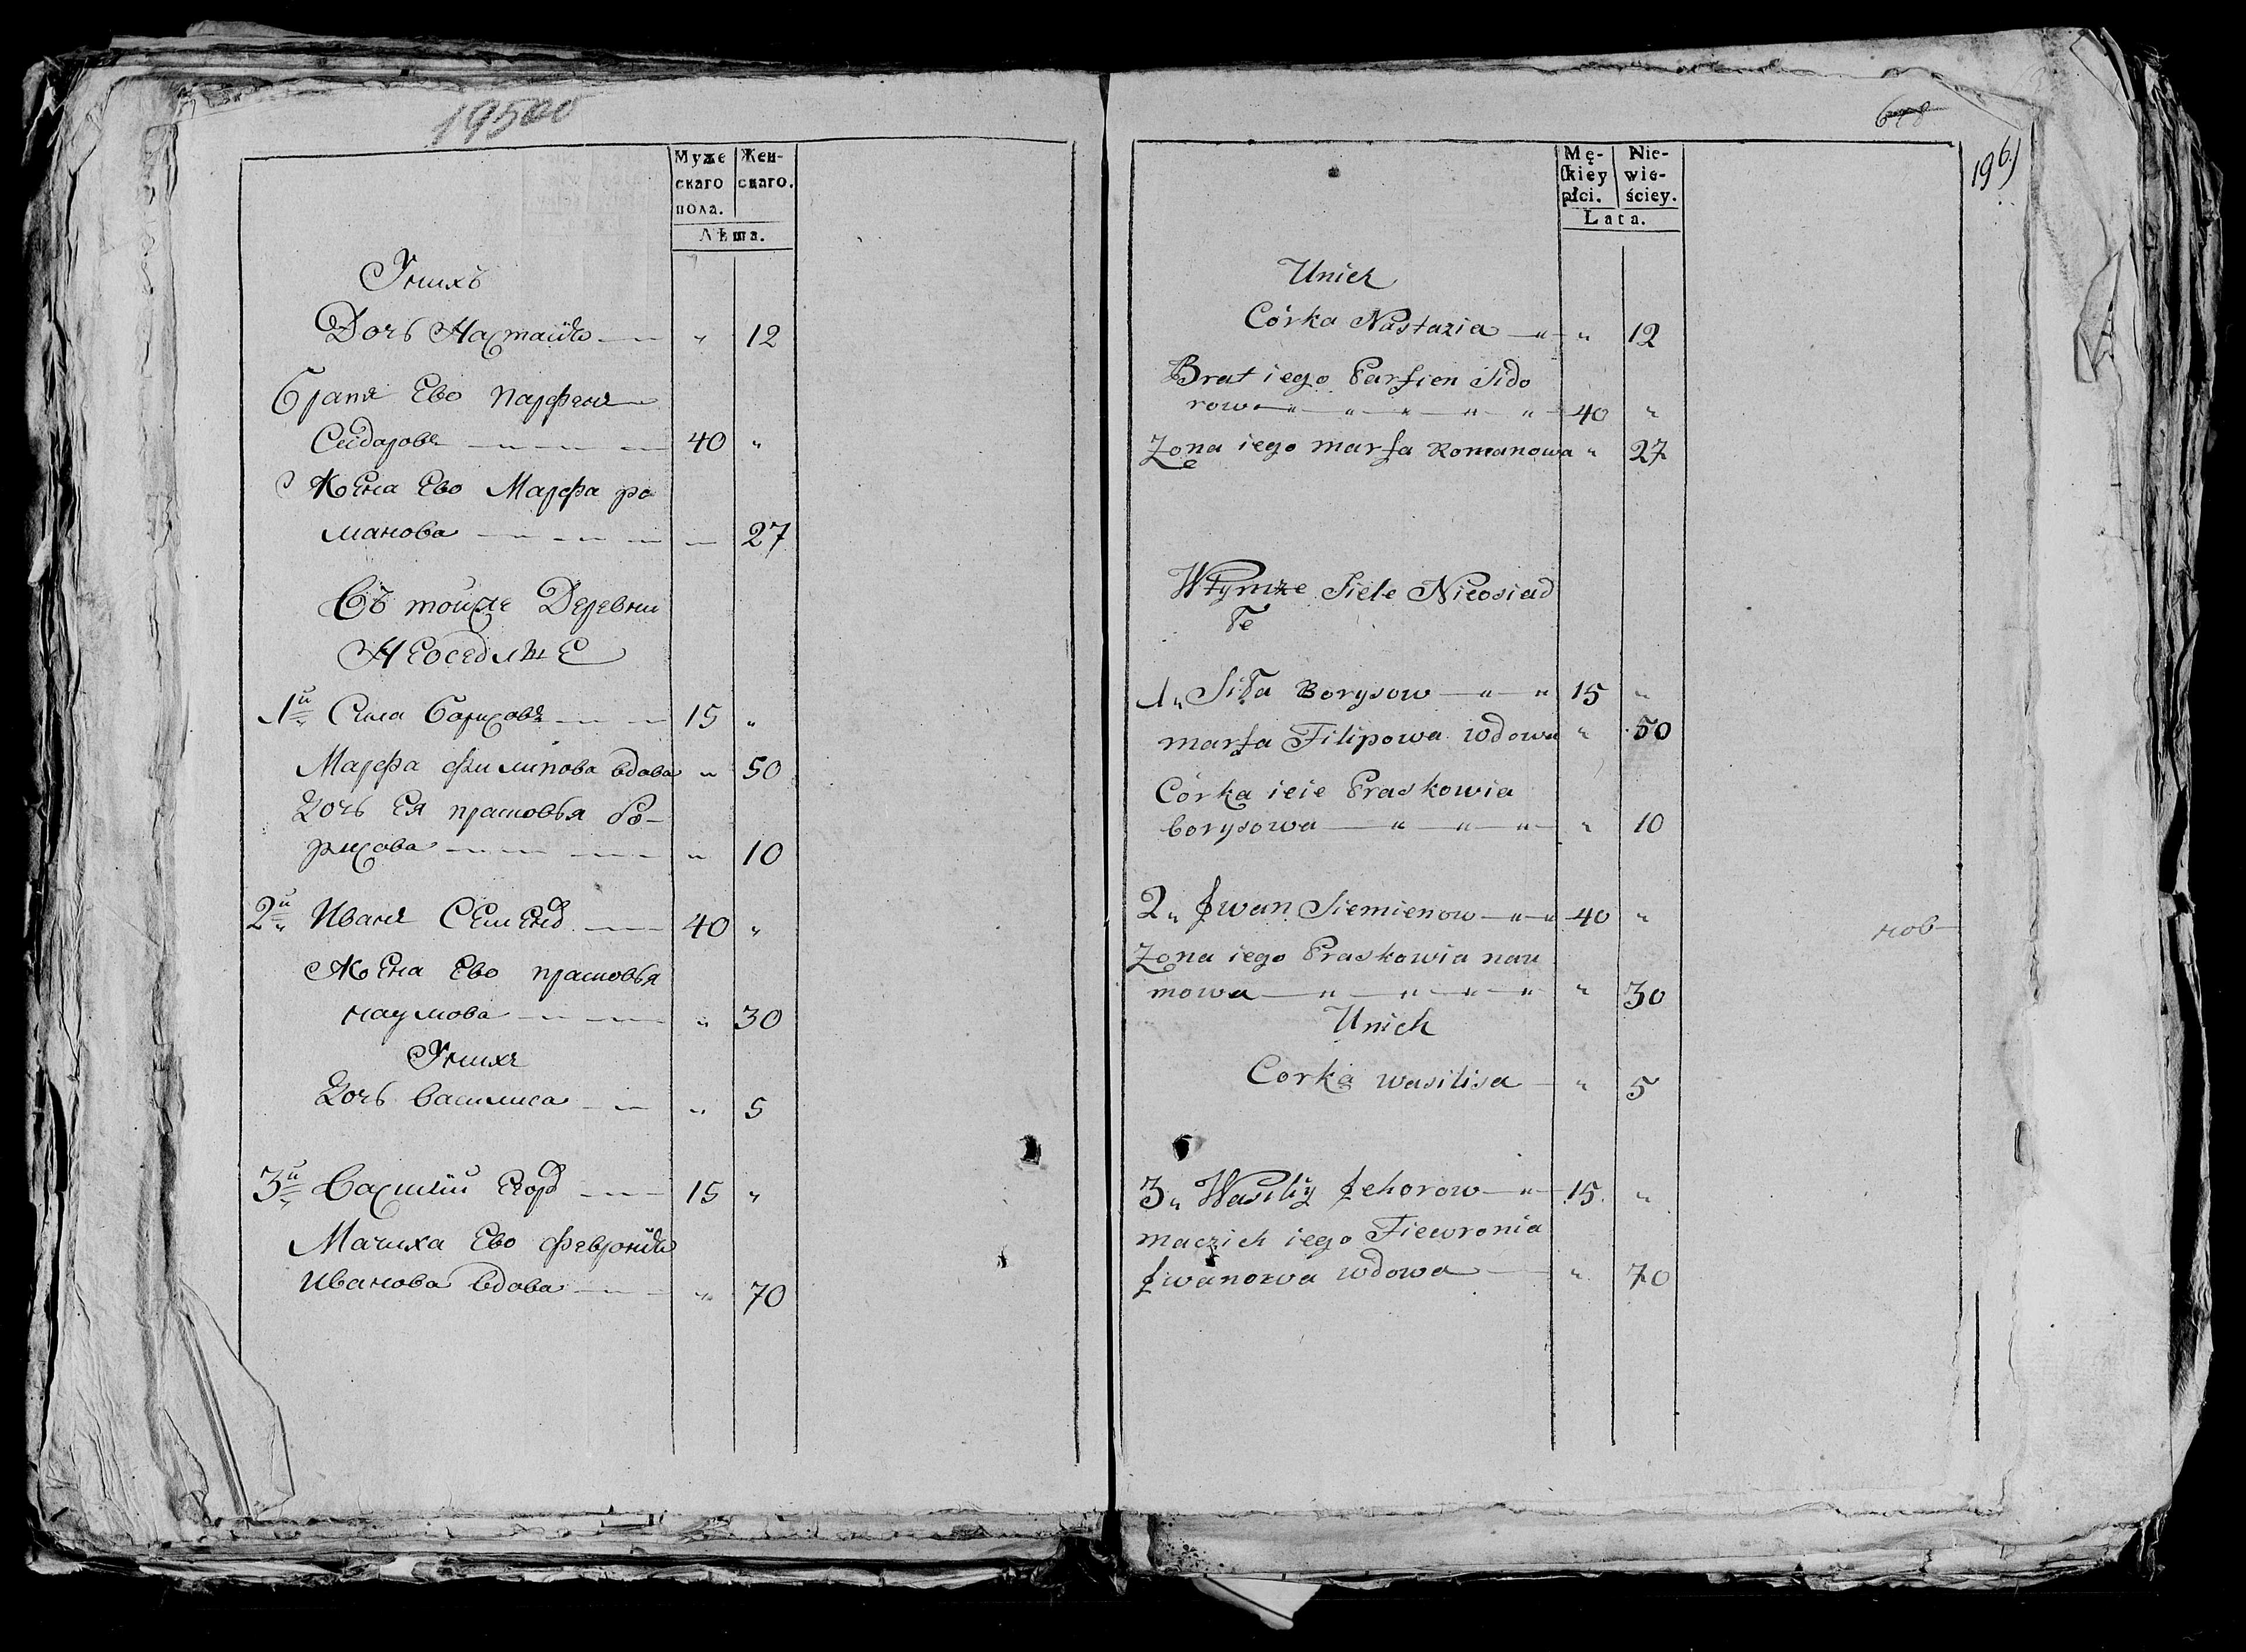 195об
Муже Жен-
скаго скаго.
пола.
Лѣта.
Унихъ
Дочь Настасiя — „ 12
братъ Ево парфенъ
Сидоровъ — 40 „
Жена Ево Марфа ро
манова — 27
Въ тойже Деревни
НЕоседлыЕ
1й Сила барисовъ — 15 „
Марфа филипова вдова „ 50
Дочь Ея прасковья бо-
рисова — „ 10
2й Иванъ СЕмЕновъ — 40 „
Жена Ево прасковья
наумова — „ 30
Унихъ
Дочь василиса — „ 5
3й Василiй Егоровъ — 15 „
Мачиха Ево феврониiя
Иванова вдова — „ 70
648
196
Mę- Nie-
skiey wie-
płci. ściey.
Lata.
Unich
Córka Nastazia — „ 12
Brat iego Parfien Sido
row — 40 „
Zona iego marfa Romanowa „ 27
Wtymze Siele Nieosiad
łe
1„ Siła Borysow — 15 „
marfa Filipowa wdowa „ 50
Córka ieie Praskowia
borysowa — „ 10
2„ Iwan Siemienow — 40 „
нов
Zona iego Praskowia nau
mowa — „ 30
Unich
Corka wasilisa — „ 5
3„ Wasiliy Iehorow — 15 „
maczich iego Fiewronia
Iwanowa wdowa — „ 70